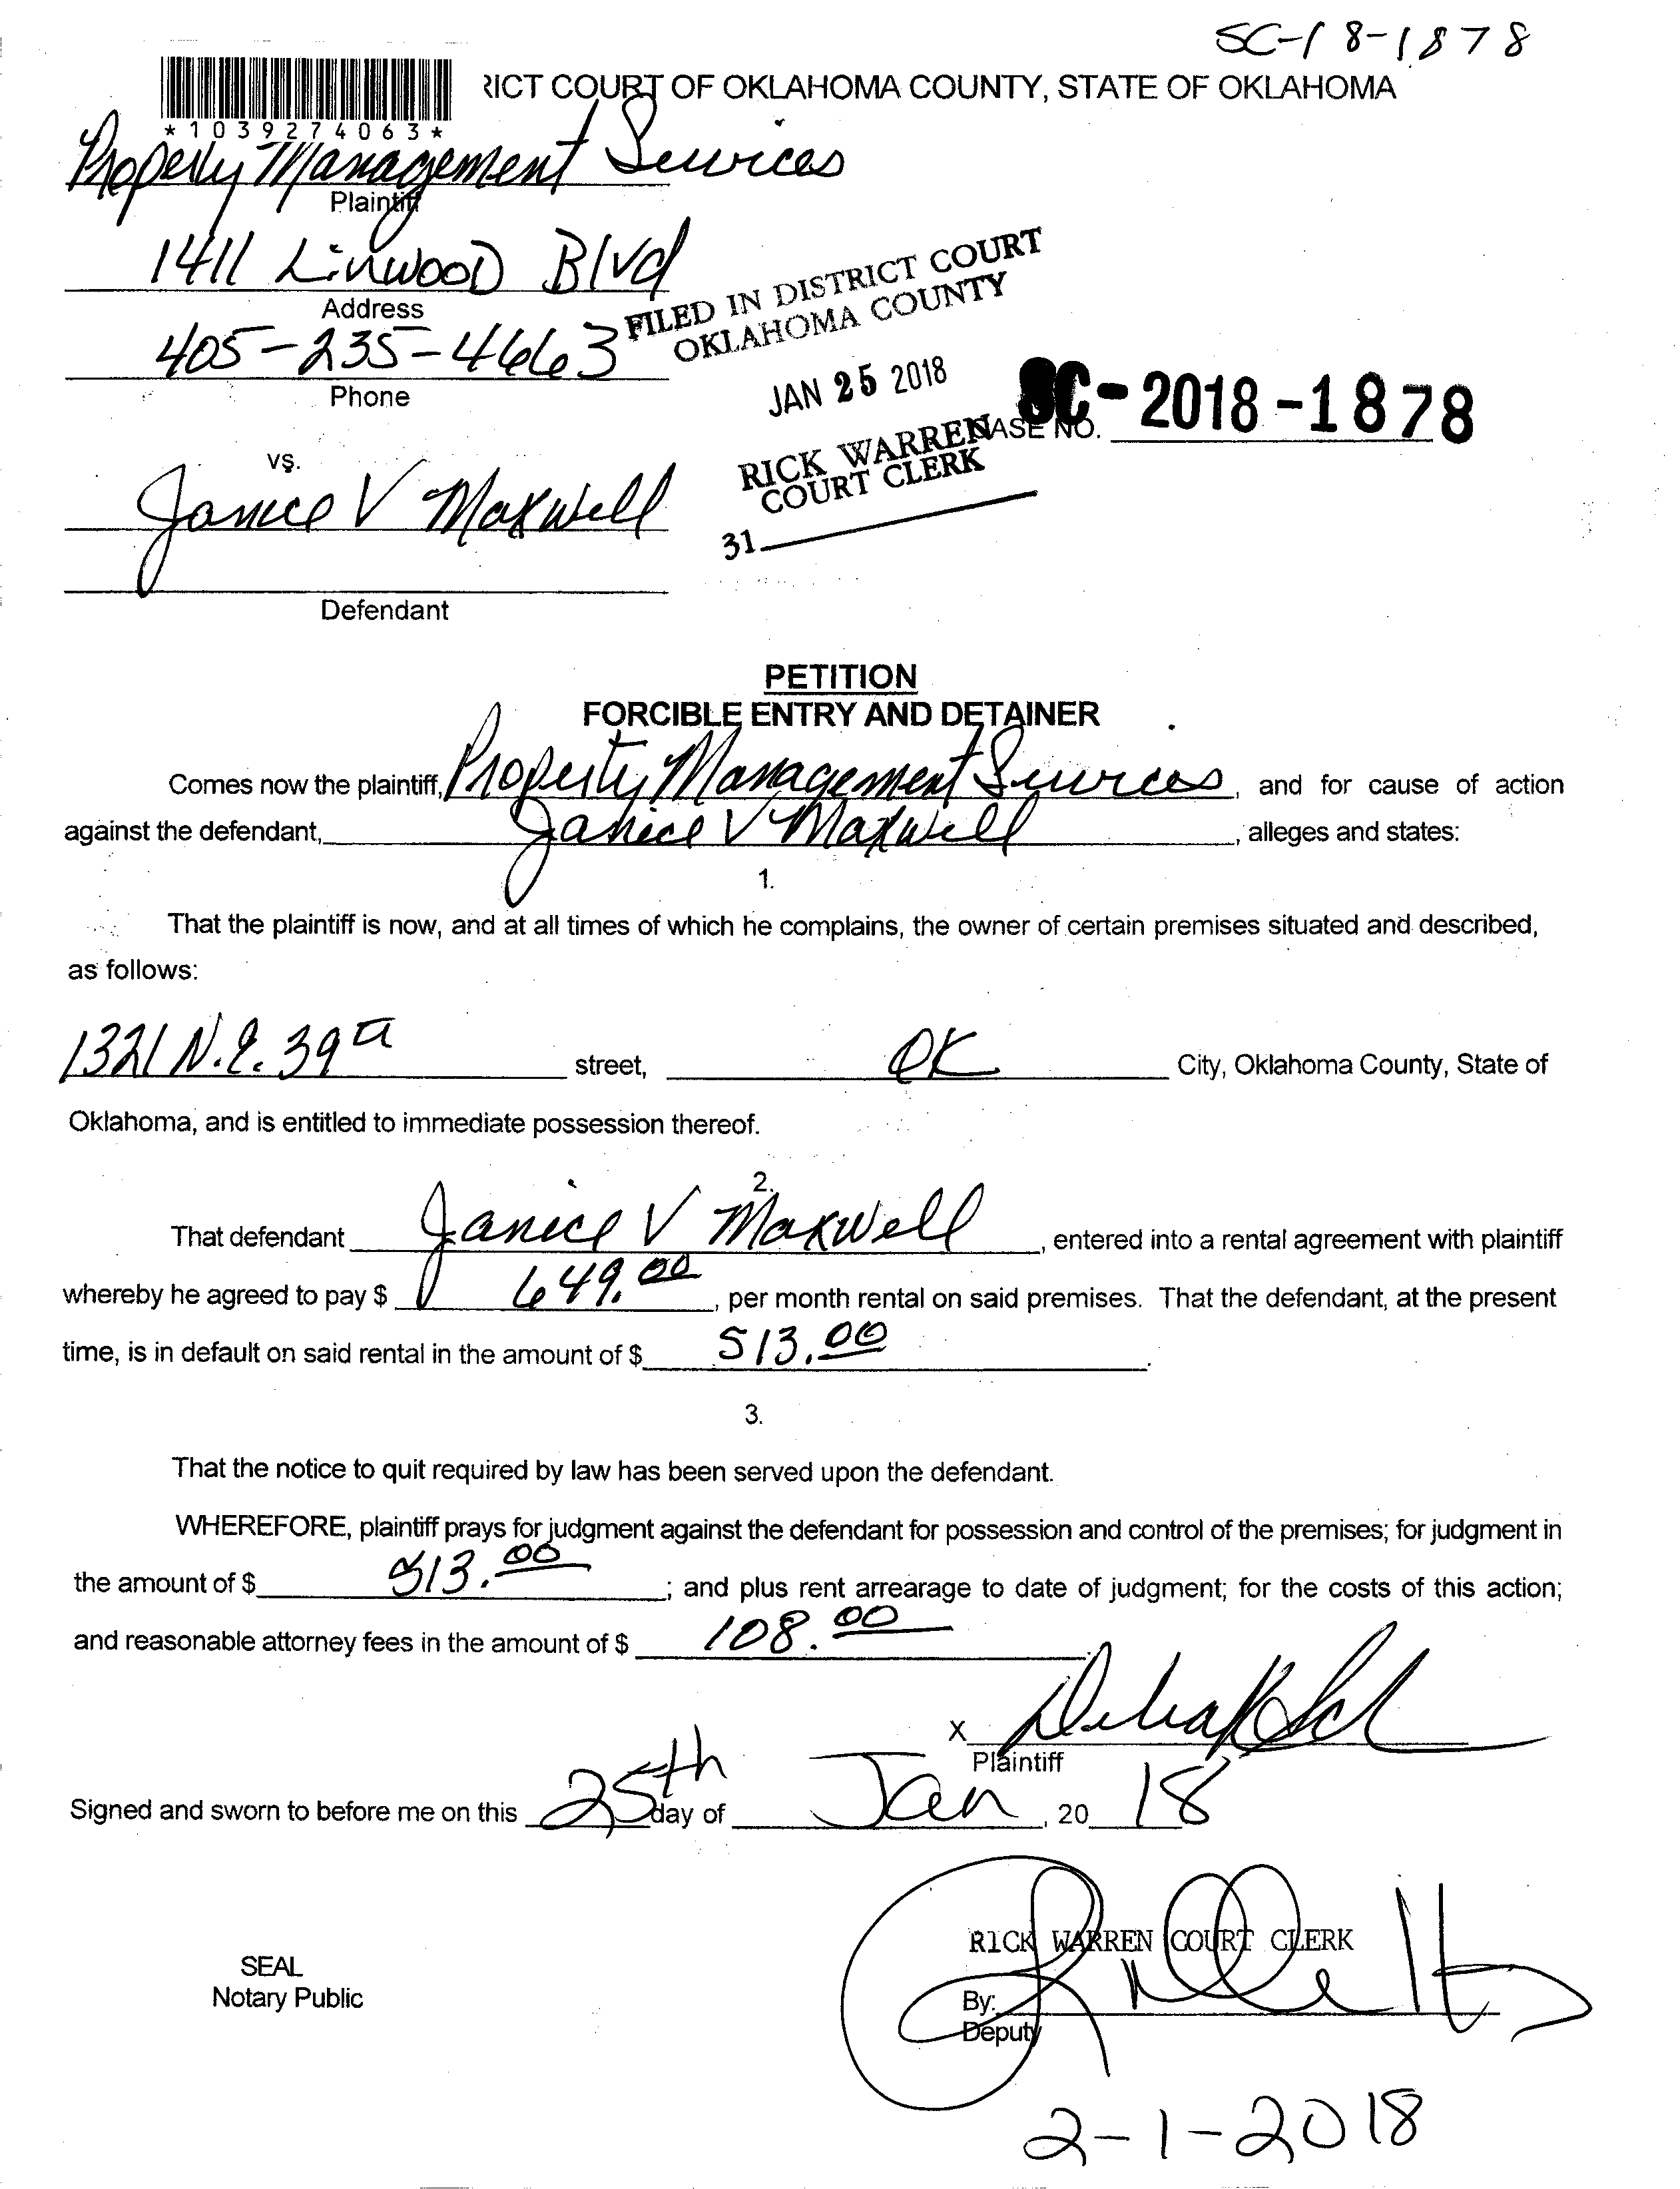 SC-18-1878
RICT COURT OF OKLAHOMA COUNTY, STATE OF OKLAHOMA
*1039274063*
Property Management Services
Plaintiff
1411 Linwood Blvd
Address
405-235-4663
Phone
FILED IN DISTRICT COURT
OKLAHOMA COUNTY
JAN 25 2018
RICK WARREN
COURT CLERK
31
CASE NO. SC-2018-1878
vs.
Janice V Maxwell
Defendant
PETITION
FORCIBLE ENTRY AND DETAINER
Comes now the plaintiff, Property Management Services, and for cause of action
against the defendant, Janice V Maxwell, alleges and states:
1.
That the plaintiff is now, and at all times of which he complains, the owner of certain premises situated and described,
as follows:
1321 N.E. 39th street, OK City, Oklahoma County, State of
Oklahoma, and is entitled to immediate possession thereof.
2.
That defendant Janice V Maxwell, entered into a rental agreement with plaintiff
whereby he agreed to pay $ 649.00, per month rental on said premises. That the defendant, at the present
time, is in default on said rental in the amount of $ 513.00.
3.
That the notice to quit required by law has been served upon the defendant.
WHEREFORE, plaintiff prays for judgment against the defendant for possession and control of the premises; for judgment in
the amount of $ 513.00; and plus rent arrearage to date of judgment; for the costs of this action;
and reasonable attorney fees in the amount of $ 108.00.
X
Plaintiff
Signed and sworn to before me on this 25th day of Jan, 20 18
RICK WARREN COURT CLERK
SEAL
Notary Public
By:
Deputy
2-1-2018